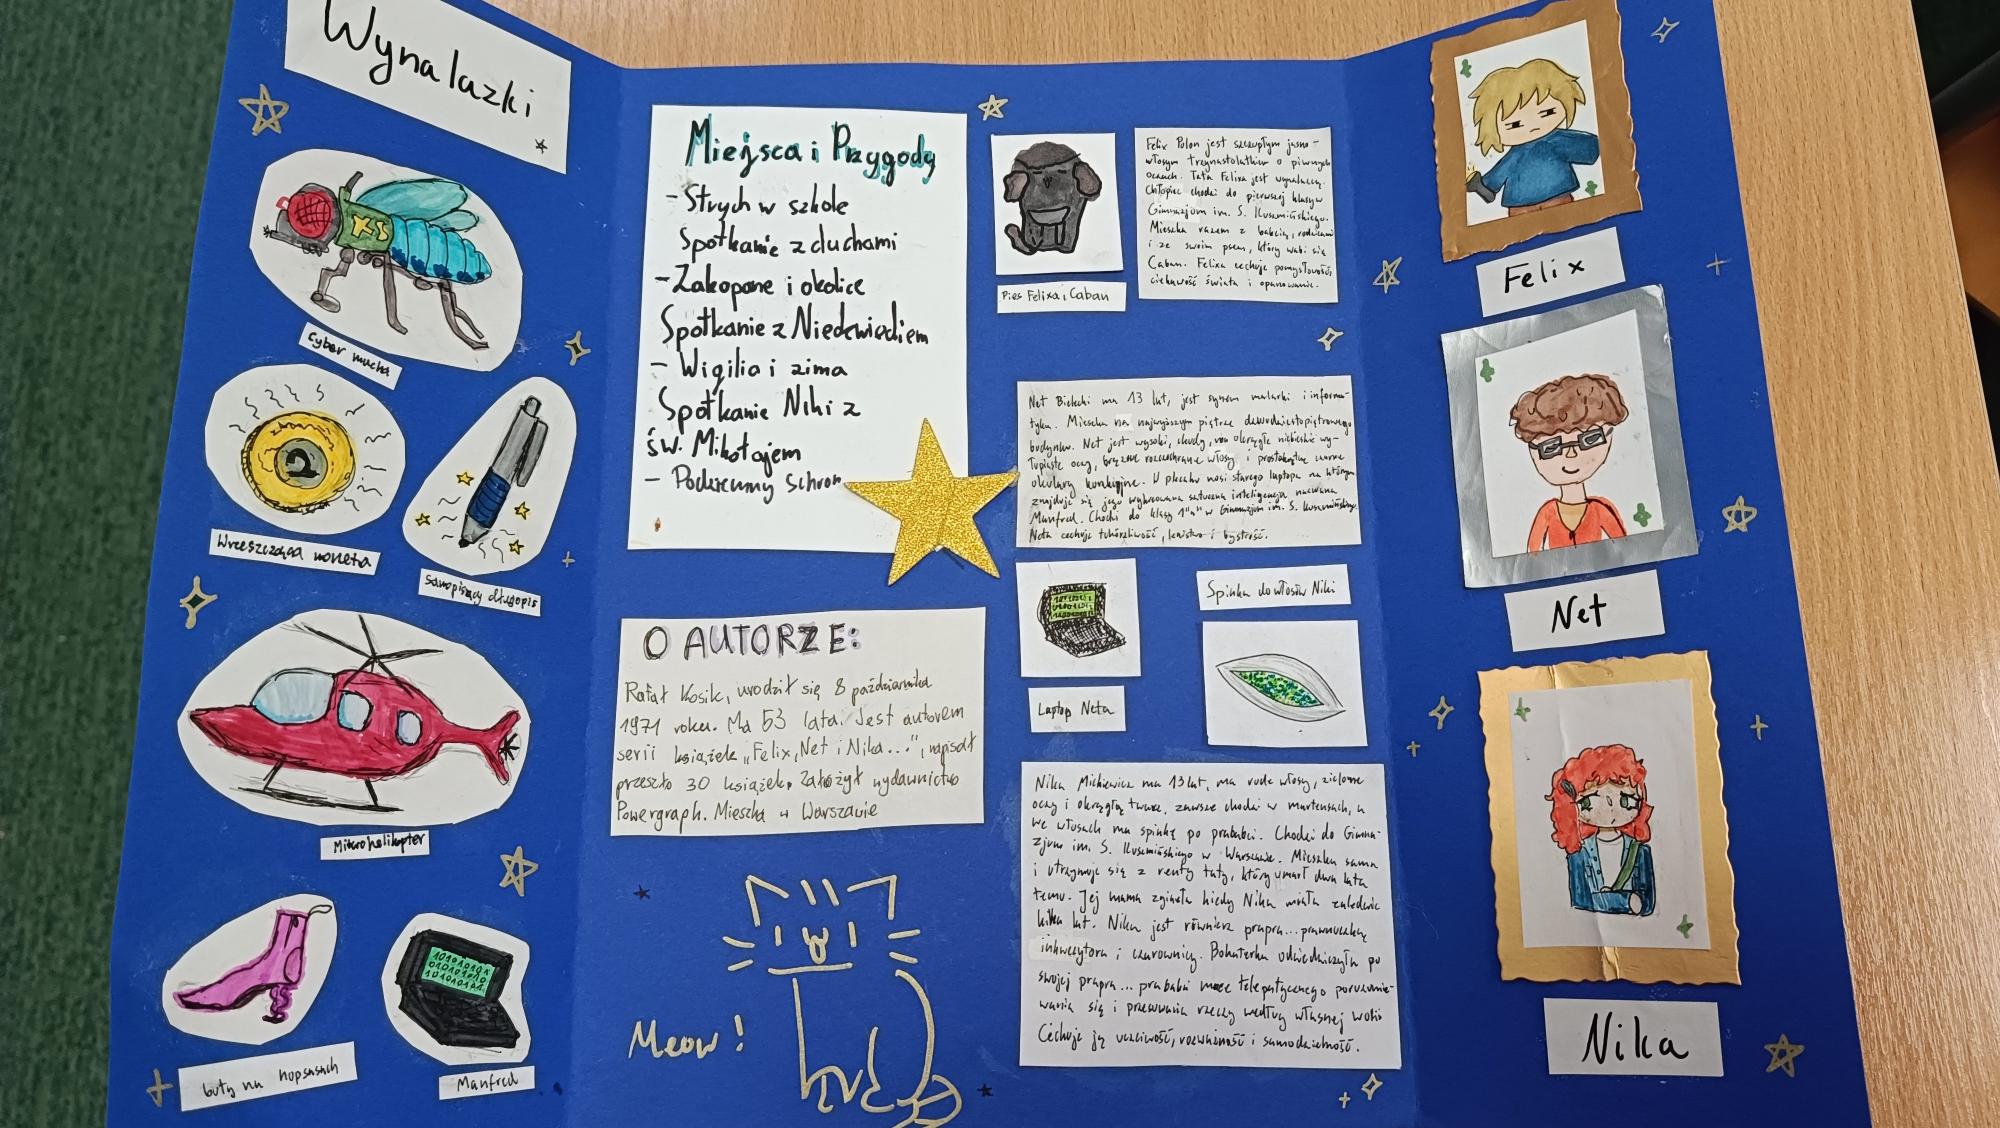 Wynalazki
KS
cyber mucha
Wrzeszcząca moneta
samopiszący długopis
Mikrohelikopter
buty na hopsasach
Manfred
Miejsca i Przygody
- Strych w szkole
Spotkanie z duchami
- Zakopane i okolice
Spotkanie z Niedźwiedziem
- Wigilia i zima
Spotkanie Niki z
św. Mikołajem
- Podziemny Schron
O AUTORZE:
Rafał Kosik, urodził się 8 października
1971 roku. Ma 53 lata. Jest autorem
serii książek „Felix, Net i Nika...", napisał
przeszło 30 książek. Założył wydawnictwo
Powergraph. Mieszka w Warszawie
Meow!
Pies Felixa, Caban
Felix Polon jest szczupłym jasno-
włosym trzynastolatkiem o piwnych
oczach. Tata Felixa jest wynalazcą.
Chłopiec chodzi do pierwszej klasy w
Gimnazjum im. S. Kuszmińskiego.
Mieszka razem z babcią, rodzicami
i ze swoim psem, który wabi się
Caban. Felixa cechuje pomysłowość,
ciekawość świata i opanowanie.
Net Bielecki ma 13 lat, jest synem malarki i informa-
tyka. Mieszka na najwyższym piętrze dwudziestopiętrowego
budynku. Net jest wysoki, chudy, ma okrągłe niebieskie wy-
łupiaste oczy, brązowe rozczochrane włosy i prostokątne czarne
okulary korekcyjne. W plecaku nosi starego laptopa na którym
znajduje się jego wykreowana sztuczna inteligencja nazwana
Manfred. Chodzi do klasy 1"a" w Gimnazjum im. S. Kuszmińskiego.
Neta cechuje tchórzliwość, lenistwo i bystrość.
Laptop Neta
Spinka do włosów Niki
Nika Mickiewicz ma 13 lat, ma rude włosy, zielone
oczy i okrągłą twarz, zawsze chodzi w martensach, a
we włosach ma spinkę po prababci. Chodzi do Gimna-
zjum im. S. Kuszmińskiego w Warszawie. Mieszka sama
i utrzymuje się z renty taty, który umarł dwa lata
temu. Jej mama zginęła kiedy Nika miała zaledwie
kilka lat. Nika jest również prapra...prawnuczką
inkwizytora i czarownicy. Bohaterka odziedziczyła po
swojej prapra... prababci moce telepatycznego porozumie-
wania się i przesuwania rzeczy według własnej woli.
Cechuje ją uczciwość, rozważność i samodzielność.
Felix
Net
Nika